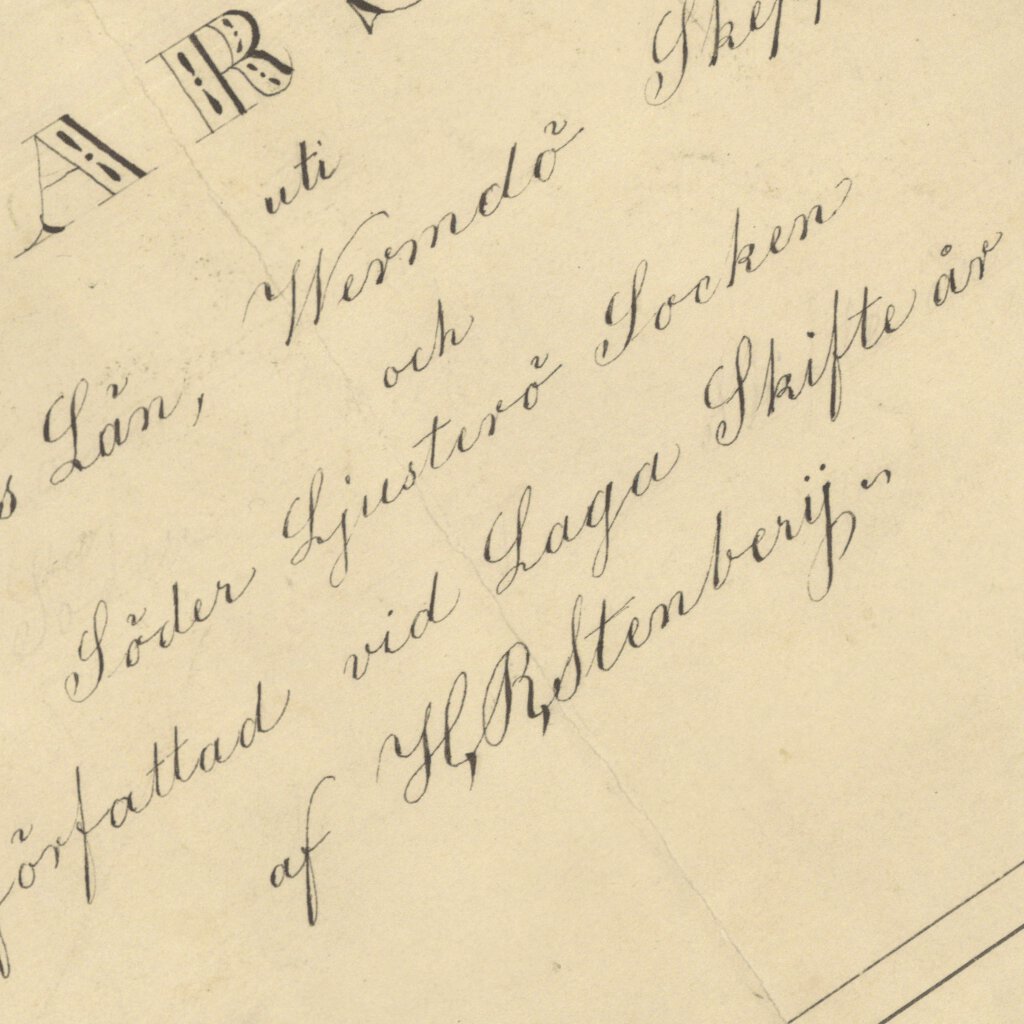 AR
uti
s Län, Wermdö Skepp
och
Söder Ljusterö Socken
författad vid Laga Skifte år
af H,R,Stenberg.